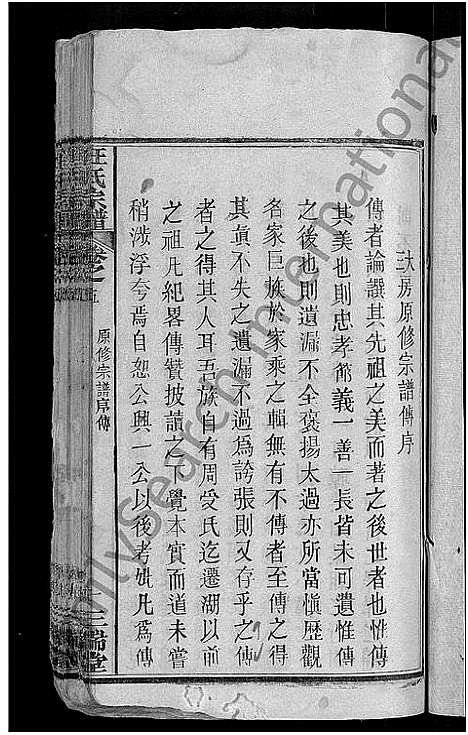 三大房原修宗譜傳序
傳者論譔其先祖之美而著之後世者也惟傳
其美也則忠孝節義一善一長皆未可遺惟傳
之後也則遺漏不全褒揚太過亦所當慎歷觀
名家巨族於家乘之輯無有不傳者至傳之得
其真不失之遺漏不過為誇張則又存乎之傳
者之得其人耳吾族自有周受氏迄遷湖以前
之祖凡紀畧傳贊披讀之下覺本實而道未嘗
稍涉浮夸焉自恕公興一公以後考妣凡為傳
汪氏宗譜 卷之五 原修宗譜序傳 三瑞堂
FamilySearch International